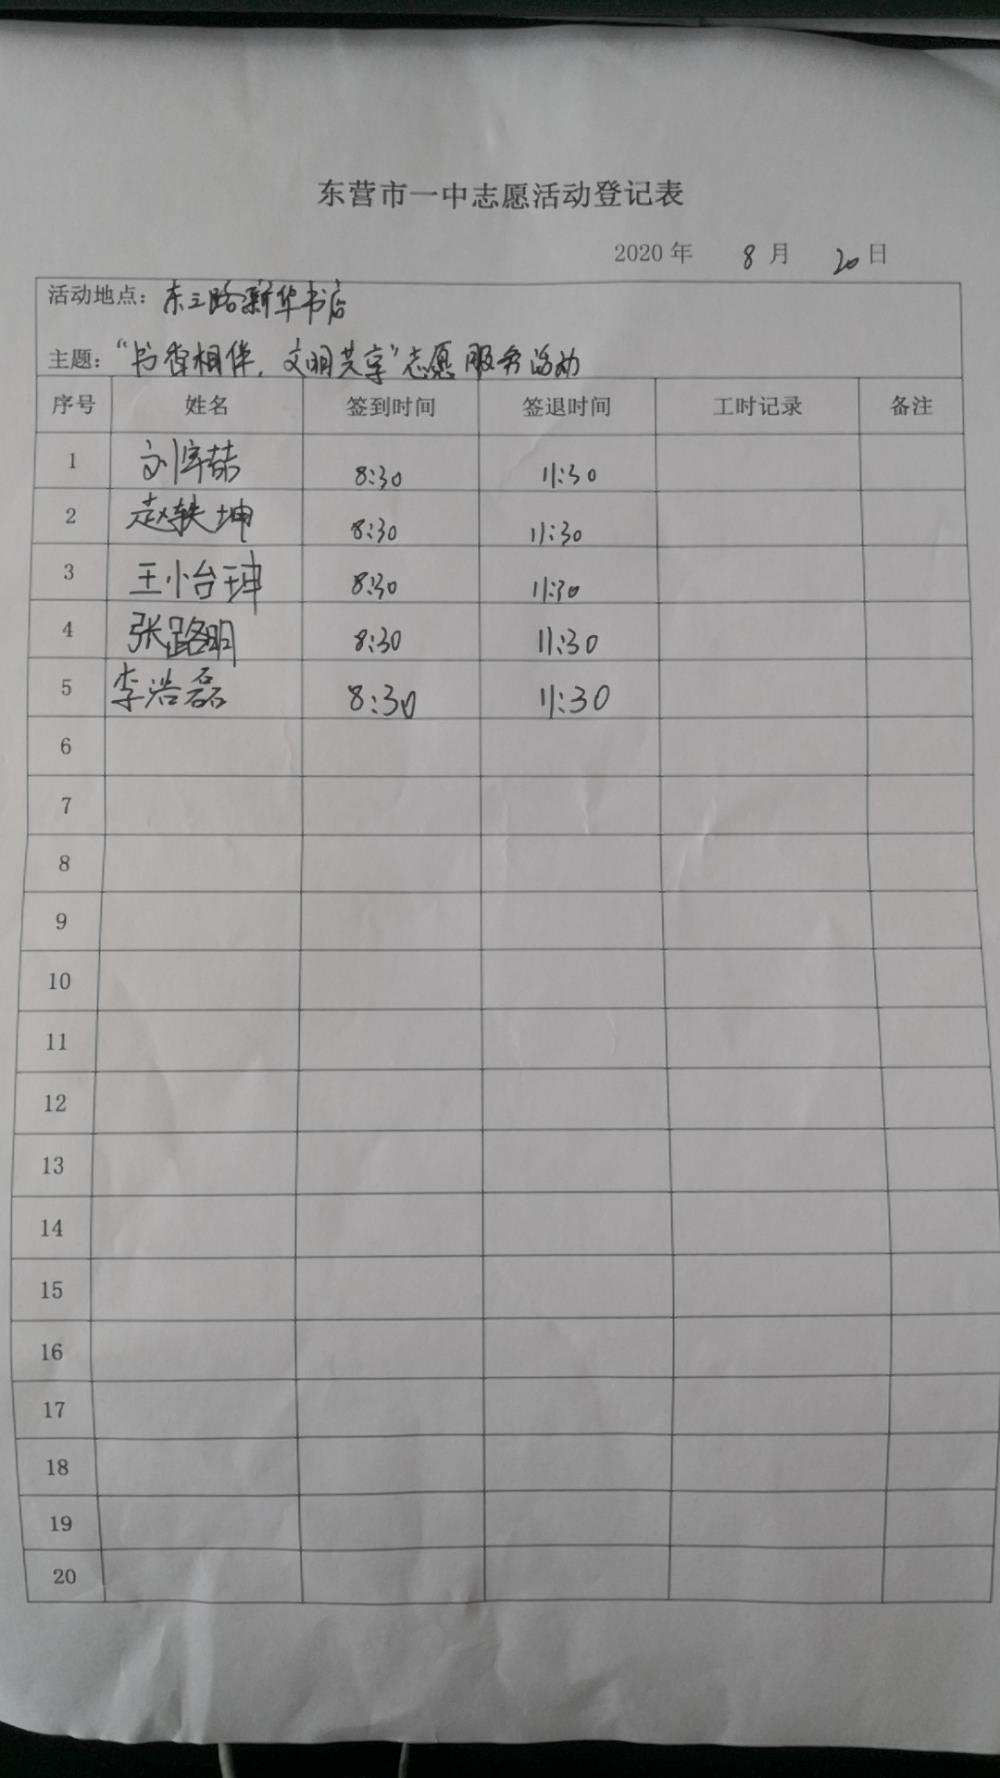 东营市一中志愿活动登记表
2020年 8月 20日
活动地点：东三路新华书店
主题：“书香相伴，文明共享”志愿服务活动
序号 姓名 签到时间 签退时间 工时记录 备注
1 刘 喆 8:30 11:30
2 赵轶坤 8:30 11:30
3 王小台珅 8:30 11:30
4 张路明 8:30 11:30
5 李浩磊 8:30 11:30
6
7
8
9
10
11
12
13
14
15
16
17
18
19
20